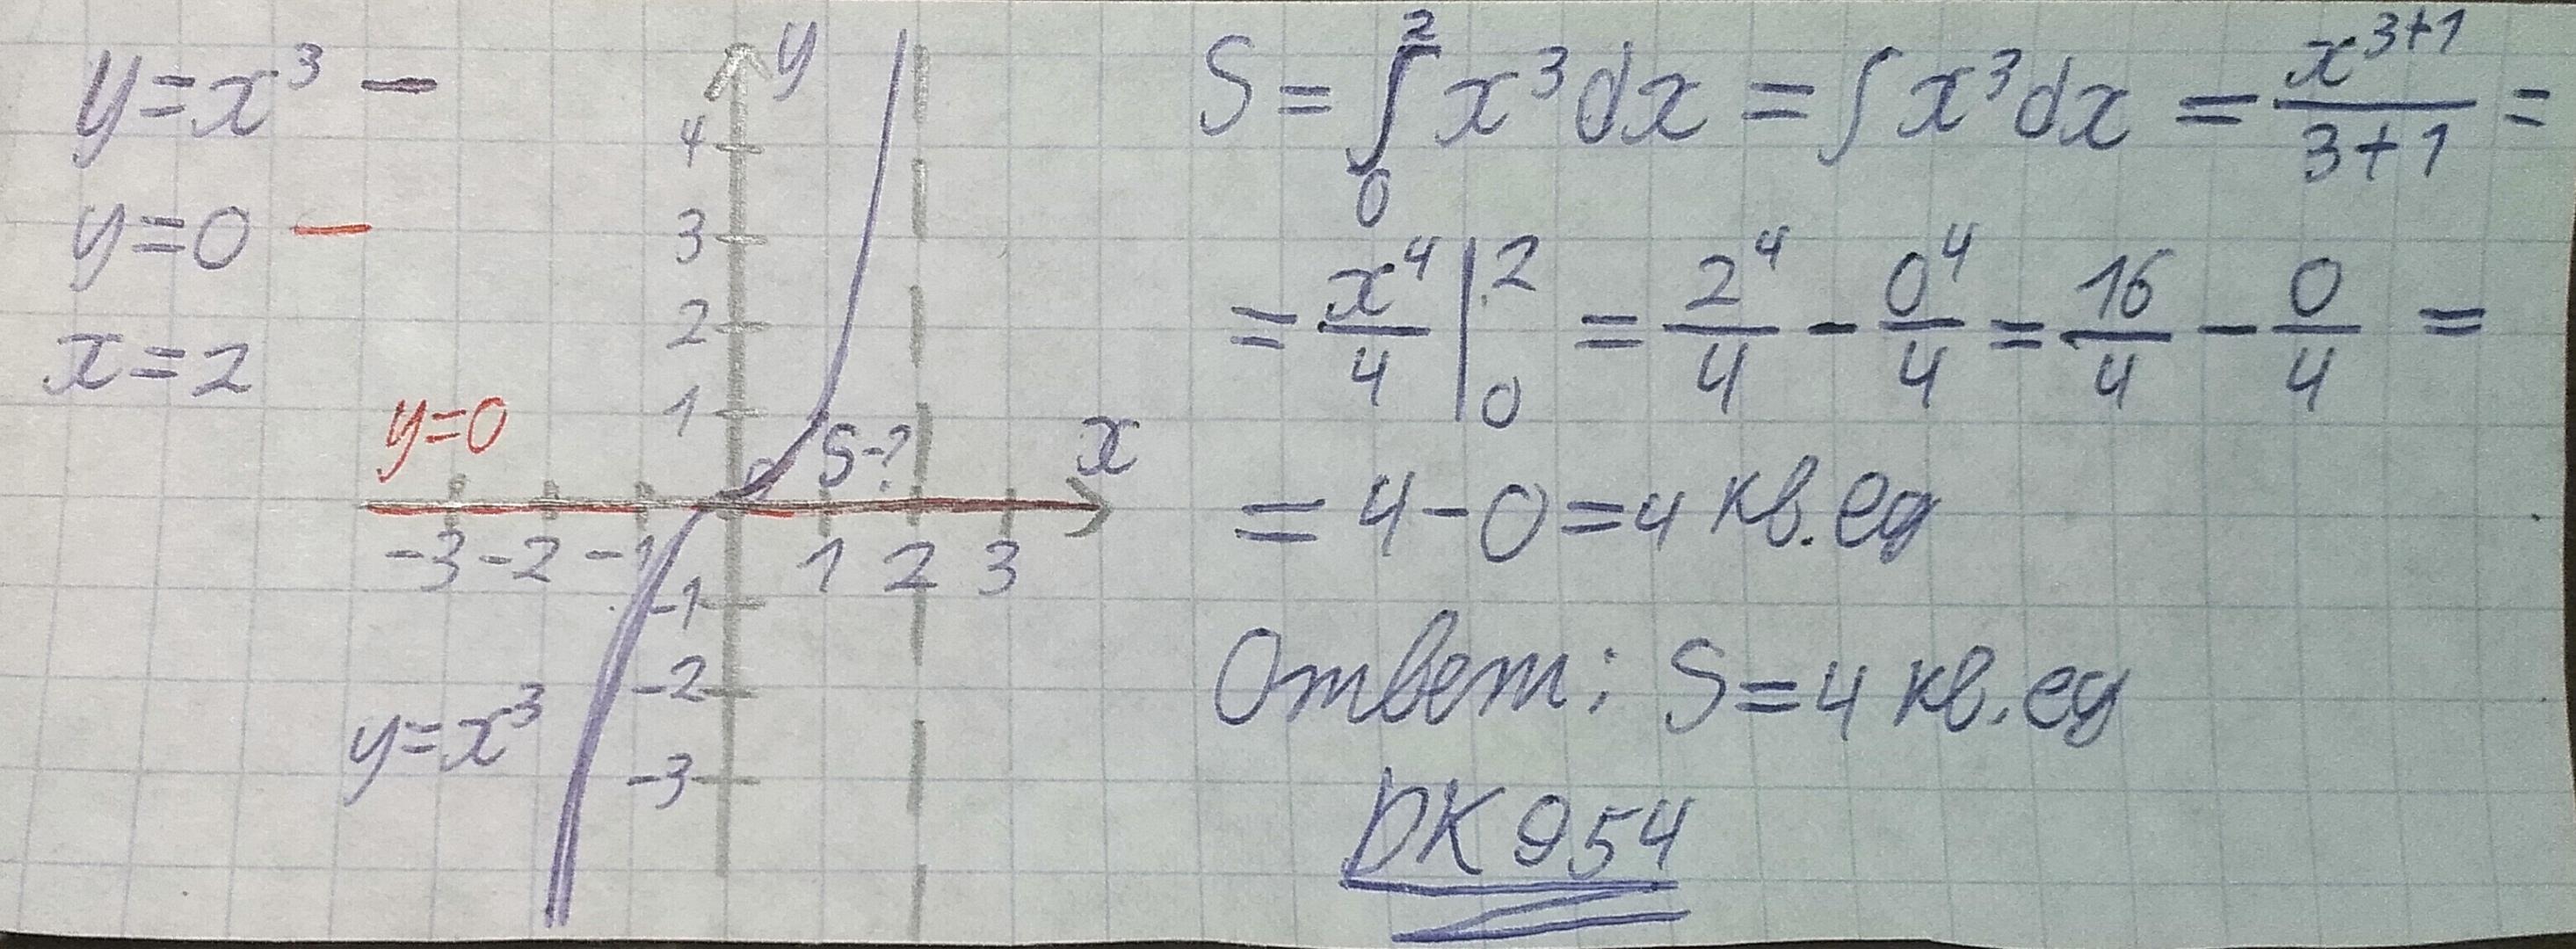 y=x³ –
y=0 –
x=2
y
4
3
2
1
y=0
S-?
x
0
-3 -2 -1 1 2 3
-1
-2
-3
y=x³
S = ∫₀² x³dx = ∫x³dx = x³⁺¹/3+1 =
= x⁴/4 |₀² = 2⁴/4 - 0⁴/4 = 16/4 - 0/4 =
= 4-0=4 кв.ед
Ответ: S=4 кв.ед
DK954